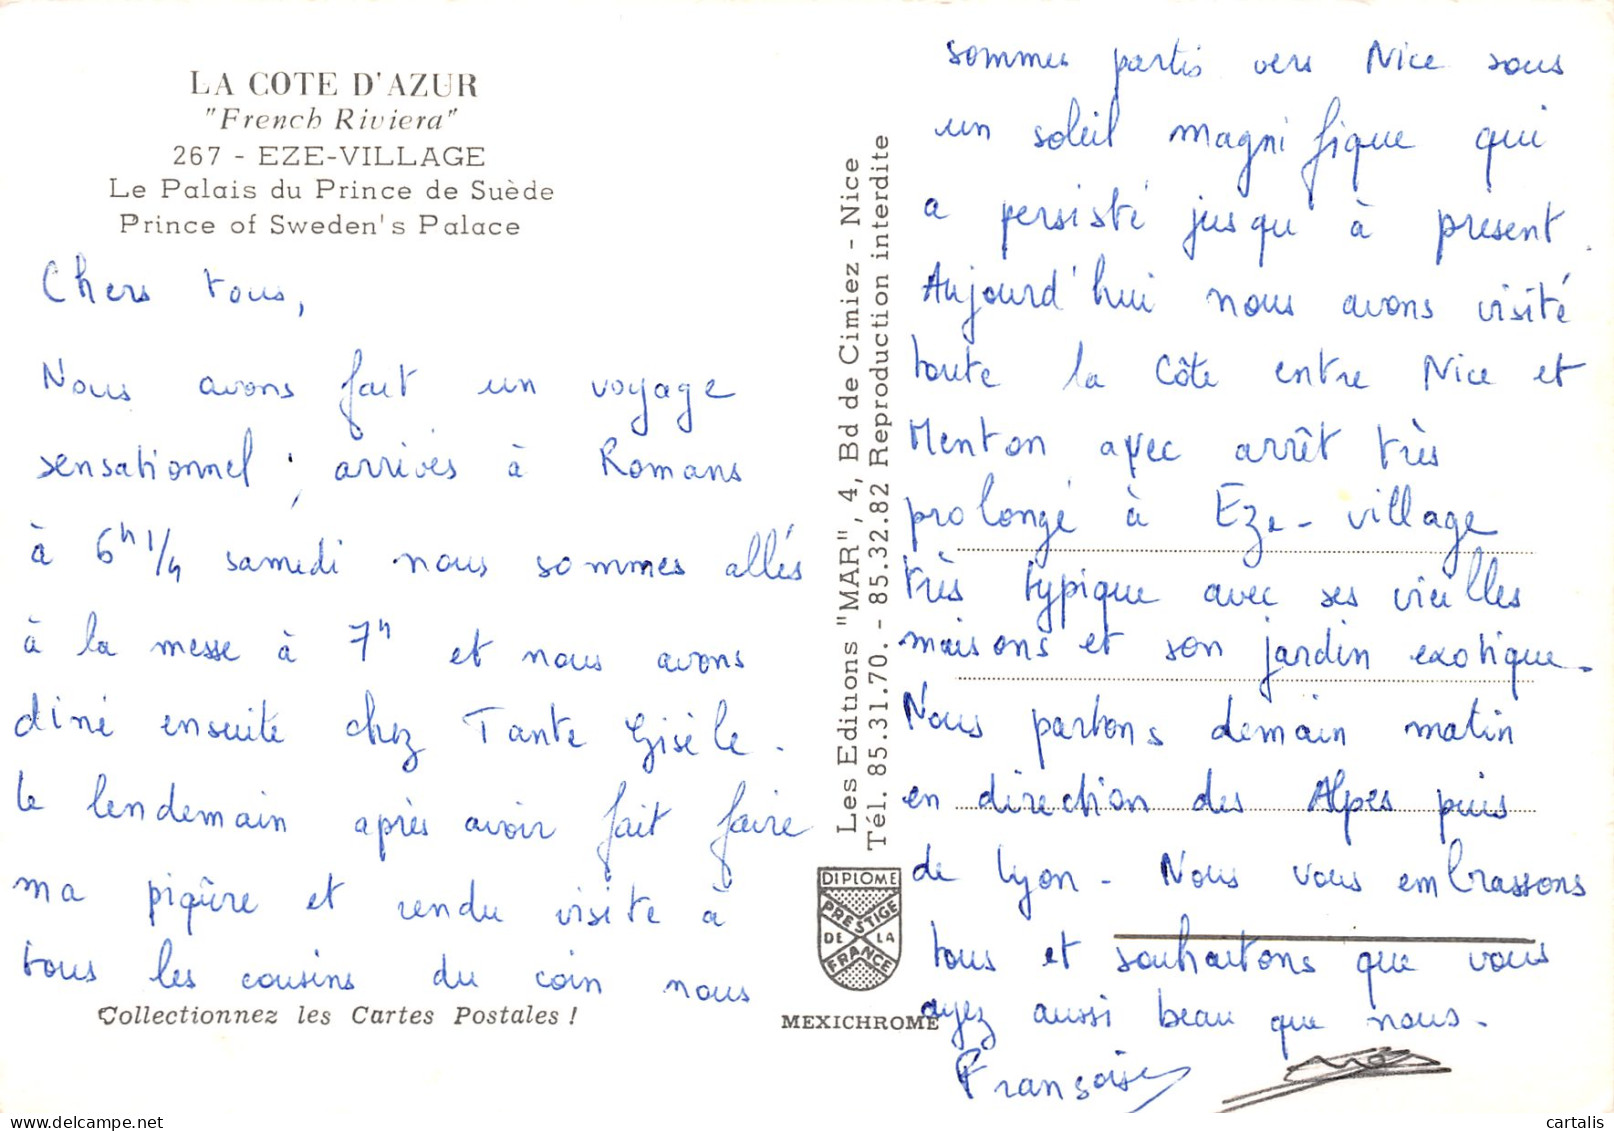 LA COTE D'AZUR
"French Riviera"
267 - EZE-VILLAGE
Le Palais du Prince de Suède
Prince of Sweden's Palace
Chers tous,
Nous avons fait un voyage
sensationnel ; arrivés à Romans
à 6h 1/4 samedi nous sommes allés
à la messe à 7h et nous avons
diné ensuite chez Tante Gisèle.
Le lendemain après avoir fait faire
ma piqûre et rendu visite à
tous les cousins du coin nous
Collectionnez les Cartes Postales !
Les Editions "MAR", 4, Bd de Cimiez - Nice
Tél. 85.31.70. - 85.32.82 Reproduction interdite
DIPLOME
PRESTIGE
DE LA
FRANCE
MEXICHROME
sommes partis vers Nice sous
un soleil magnifique qui
a persisté jusqu'à présent.
Aujourd'hui nous avons visité
toute la Côte entre Nice et
Menton avec arrêt très
prolongé à Eze-village
très typique avec ses vieilles
maisons et son jardin exotique.
Nous partons demain matin
en direction des Alpes puis
de Lyon. Nous vous embrassons
tous et souhaitons que vous
ayez aussi beau que nous.
Françoise
cartalis
www.delcampe.net